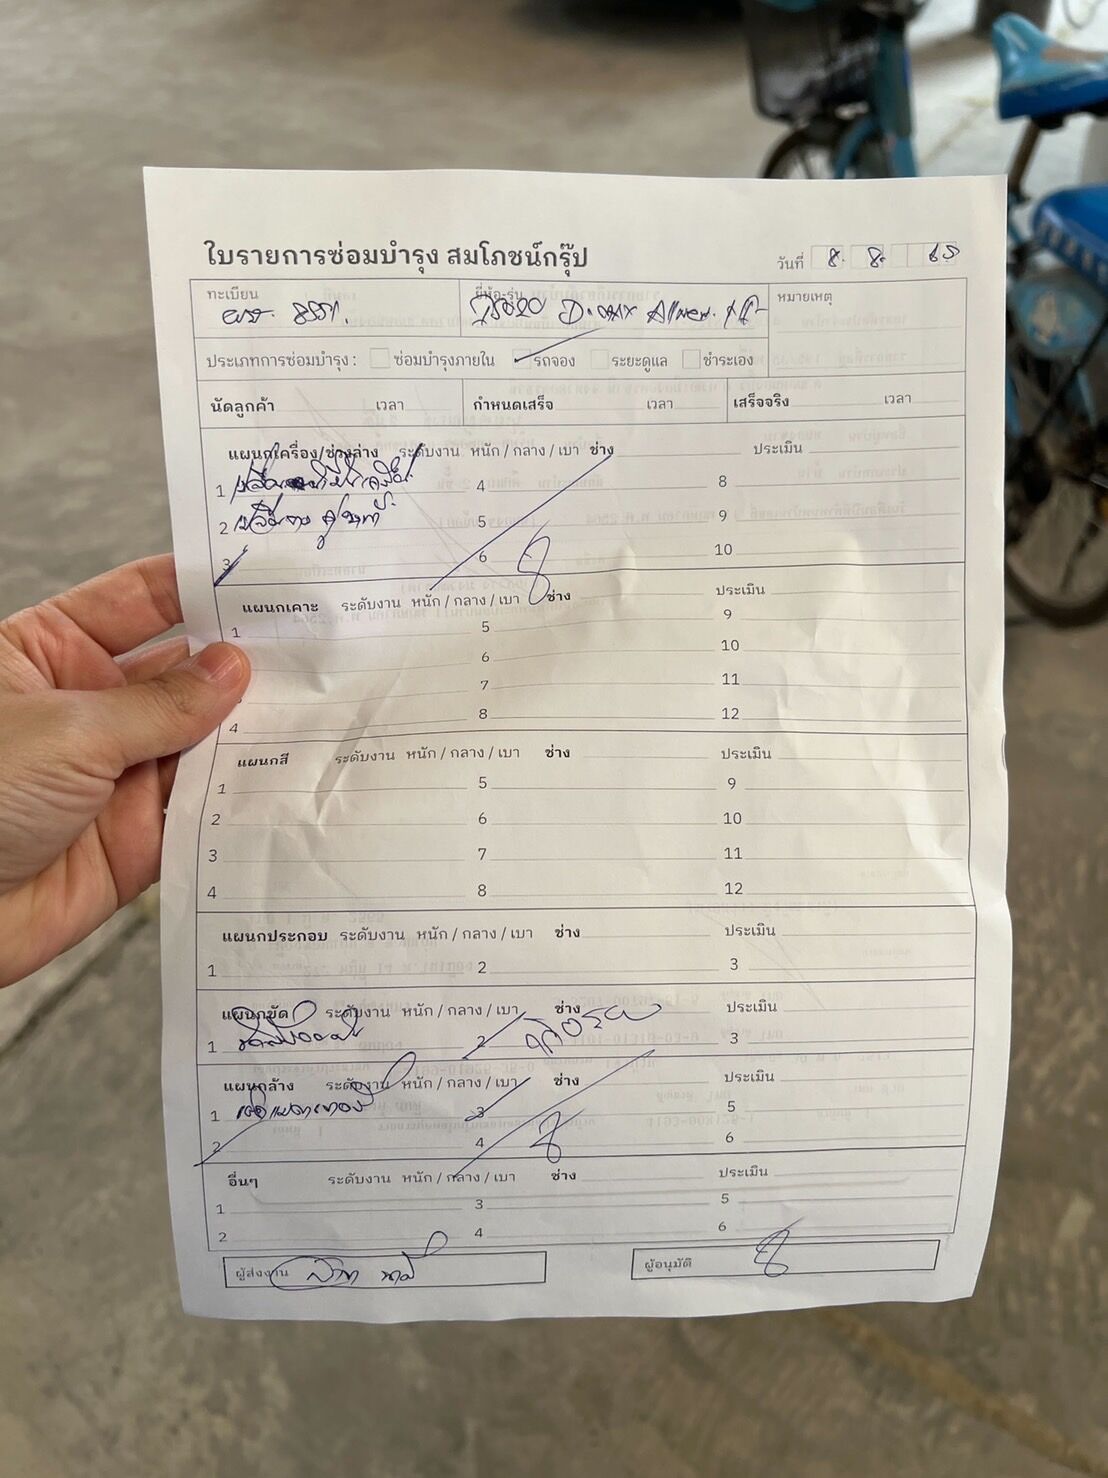 ใบรายการซ่อมบำรุง สมโภชน์กรุ๊ป
วันที่ 8. 8. 65
ทะเบียน ยี่ห้อ-รุ่น หมายเหตุ
ISUZU D-max
ประเภทการซ่อมบำรุง : ซ่อมบำรุงภายใน รถจอง ระยะดูแล ชำระเอง
นัดลูกค้า เวลา กำหนดเสร็จ เวลา เสร็จจริง เวลา
แผนกเครื่อง/ช่วงล่าง ระดับงาน หนัก / กลาง / เบา ช่าง ประเมิน
1 4 8
2 5 9
3 6 10
แผนกเคาะ ระดับงาน หนัก / กลาง / เบา ช่าง ประเมิน
1 5 9
6 10
7 11
4 8 12
แผนกสี ระดับงาน หนัก / กลาง / เบา ช่าง ประเมิน
1 5 9
2 6 10
3 7 11
4 8 12
แผนกประกอบ ระดับงาน หนัก / กลาง / เบา ช่าง ประเมิน
1 2 3
แผนกขัด ระดับงาน หนัก / กลาง / เบา ช่าง ประเมิน
1 2 3
แผนกล้าง ระดับงาน หนัก / กลาง / เบา ช่าง ประเมิน
1 3 5
2 4 6
อื่นๆ ระดับงาน หนัก / กลาง / เบา ช่าง ประเมิน
1 3 5
2 4 6
ผู้ส่งงาน ผู้อนุมัติ